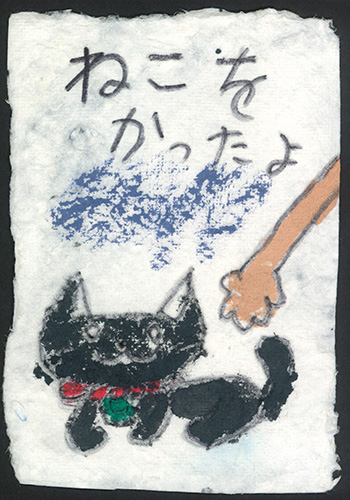 ねこを
かったよ